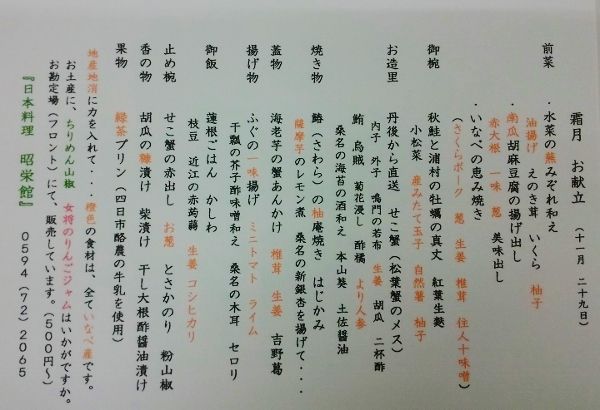 霜月　お献立　（十一月　二十九日）
前菜　・水菜の蕪みぞれ和え
油揚げ　えのき茸　いくら　柚子
・南瓜胡麻豆腐の揚げ出し
赤大根　一味　葱　美味出し
・いなべの恵み焼き
（さくらポーク　葱　生姜　椎茸　住人十味噌）
御椀　秋鮭と浦村の牡蠣の真丈　紅葉生麩
小松菜　産みたて玉子　自然薯　柚子
お造里　丹後から直送　せこ蟹（松葉蟹のメス）
内子　外子　鳴門の若布　生姜　胡瓜　二杯酢
鮪　烏賊　菊花浸し　酢橘　より人参
桑名の海苔の酒和え　本山葵　土佐醤油
焼き物　鰆（さわら）の柚庵焼き　はじかみ
薩摩芋のレモン煮　桑名の新銀杏を揚げて・・・
蓋物　海老芋の蟹あんかけ　椎茸　生姜　吉野葛
揚げ物　ふぐの一味揚げ　ミニトマト　ライム
干瓢の芥子酢味噌和え　桑名の木耳　セロリ
御飯　蓮根ごはん　かしわ
枝豆　近江の赤蒟蒻　生姜　コシヒカリ
止め椀　せこ蟹の赤出し　お葱　とさかのり　粉山椒
香の物　胡瓜の糠漬け　柴漬け　干し大根酢醤油漬け
果物　緑茶プリン（四日市酪農の牛乳を使用）
地産地消に力を入れて・・・橙色の食材は、全ていなべ産です。
お土産に、ちりめん山椒　女将のりんごジャムはいかがですか。
お勘定場（フロント）にて、販売しています。（５００円〜）
『日本料理　昭栄館』　０５９４（７２）２０６５